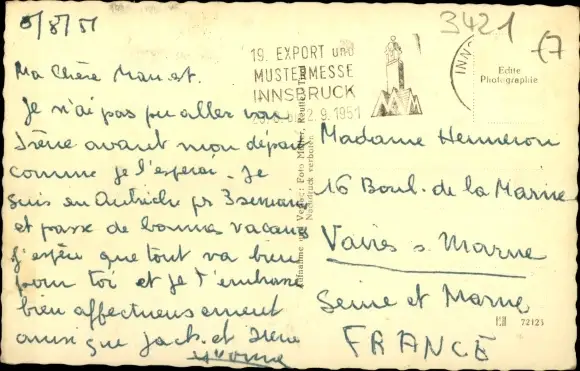 5/8/51
3421
19. EXPORT und
MUSTERMESSE
INNSBRUCK
2.9.1951
INNS
Echte
Photographie
Ma chère
Je n'ai pas pu aller voir
Irène avant mon départ
comme je l'espérai. Je
suis en Autriche pr 3 semaines
et passe de bonnes vacances
j'espère que tout va bien
pour toi et je t'embrasse
bien affectueusement
ainsi que Jack et Irène
Yvonne
Aufnahme und Verlag: Foto Müller, Reutte, Tirol
Nachdruck verboten
Madame Henneron
16 Boul. de la Marne
Vaires s. Marne
Seine et Marne
FRANCE
72123